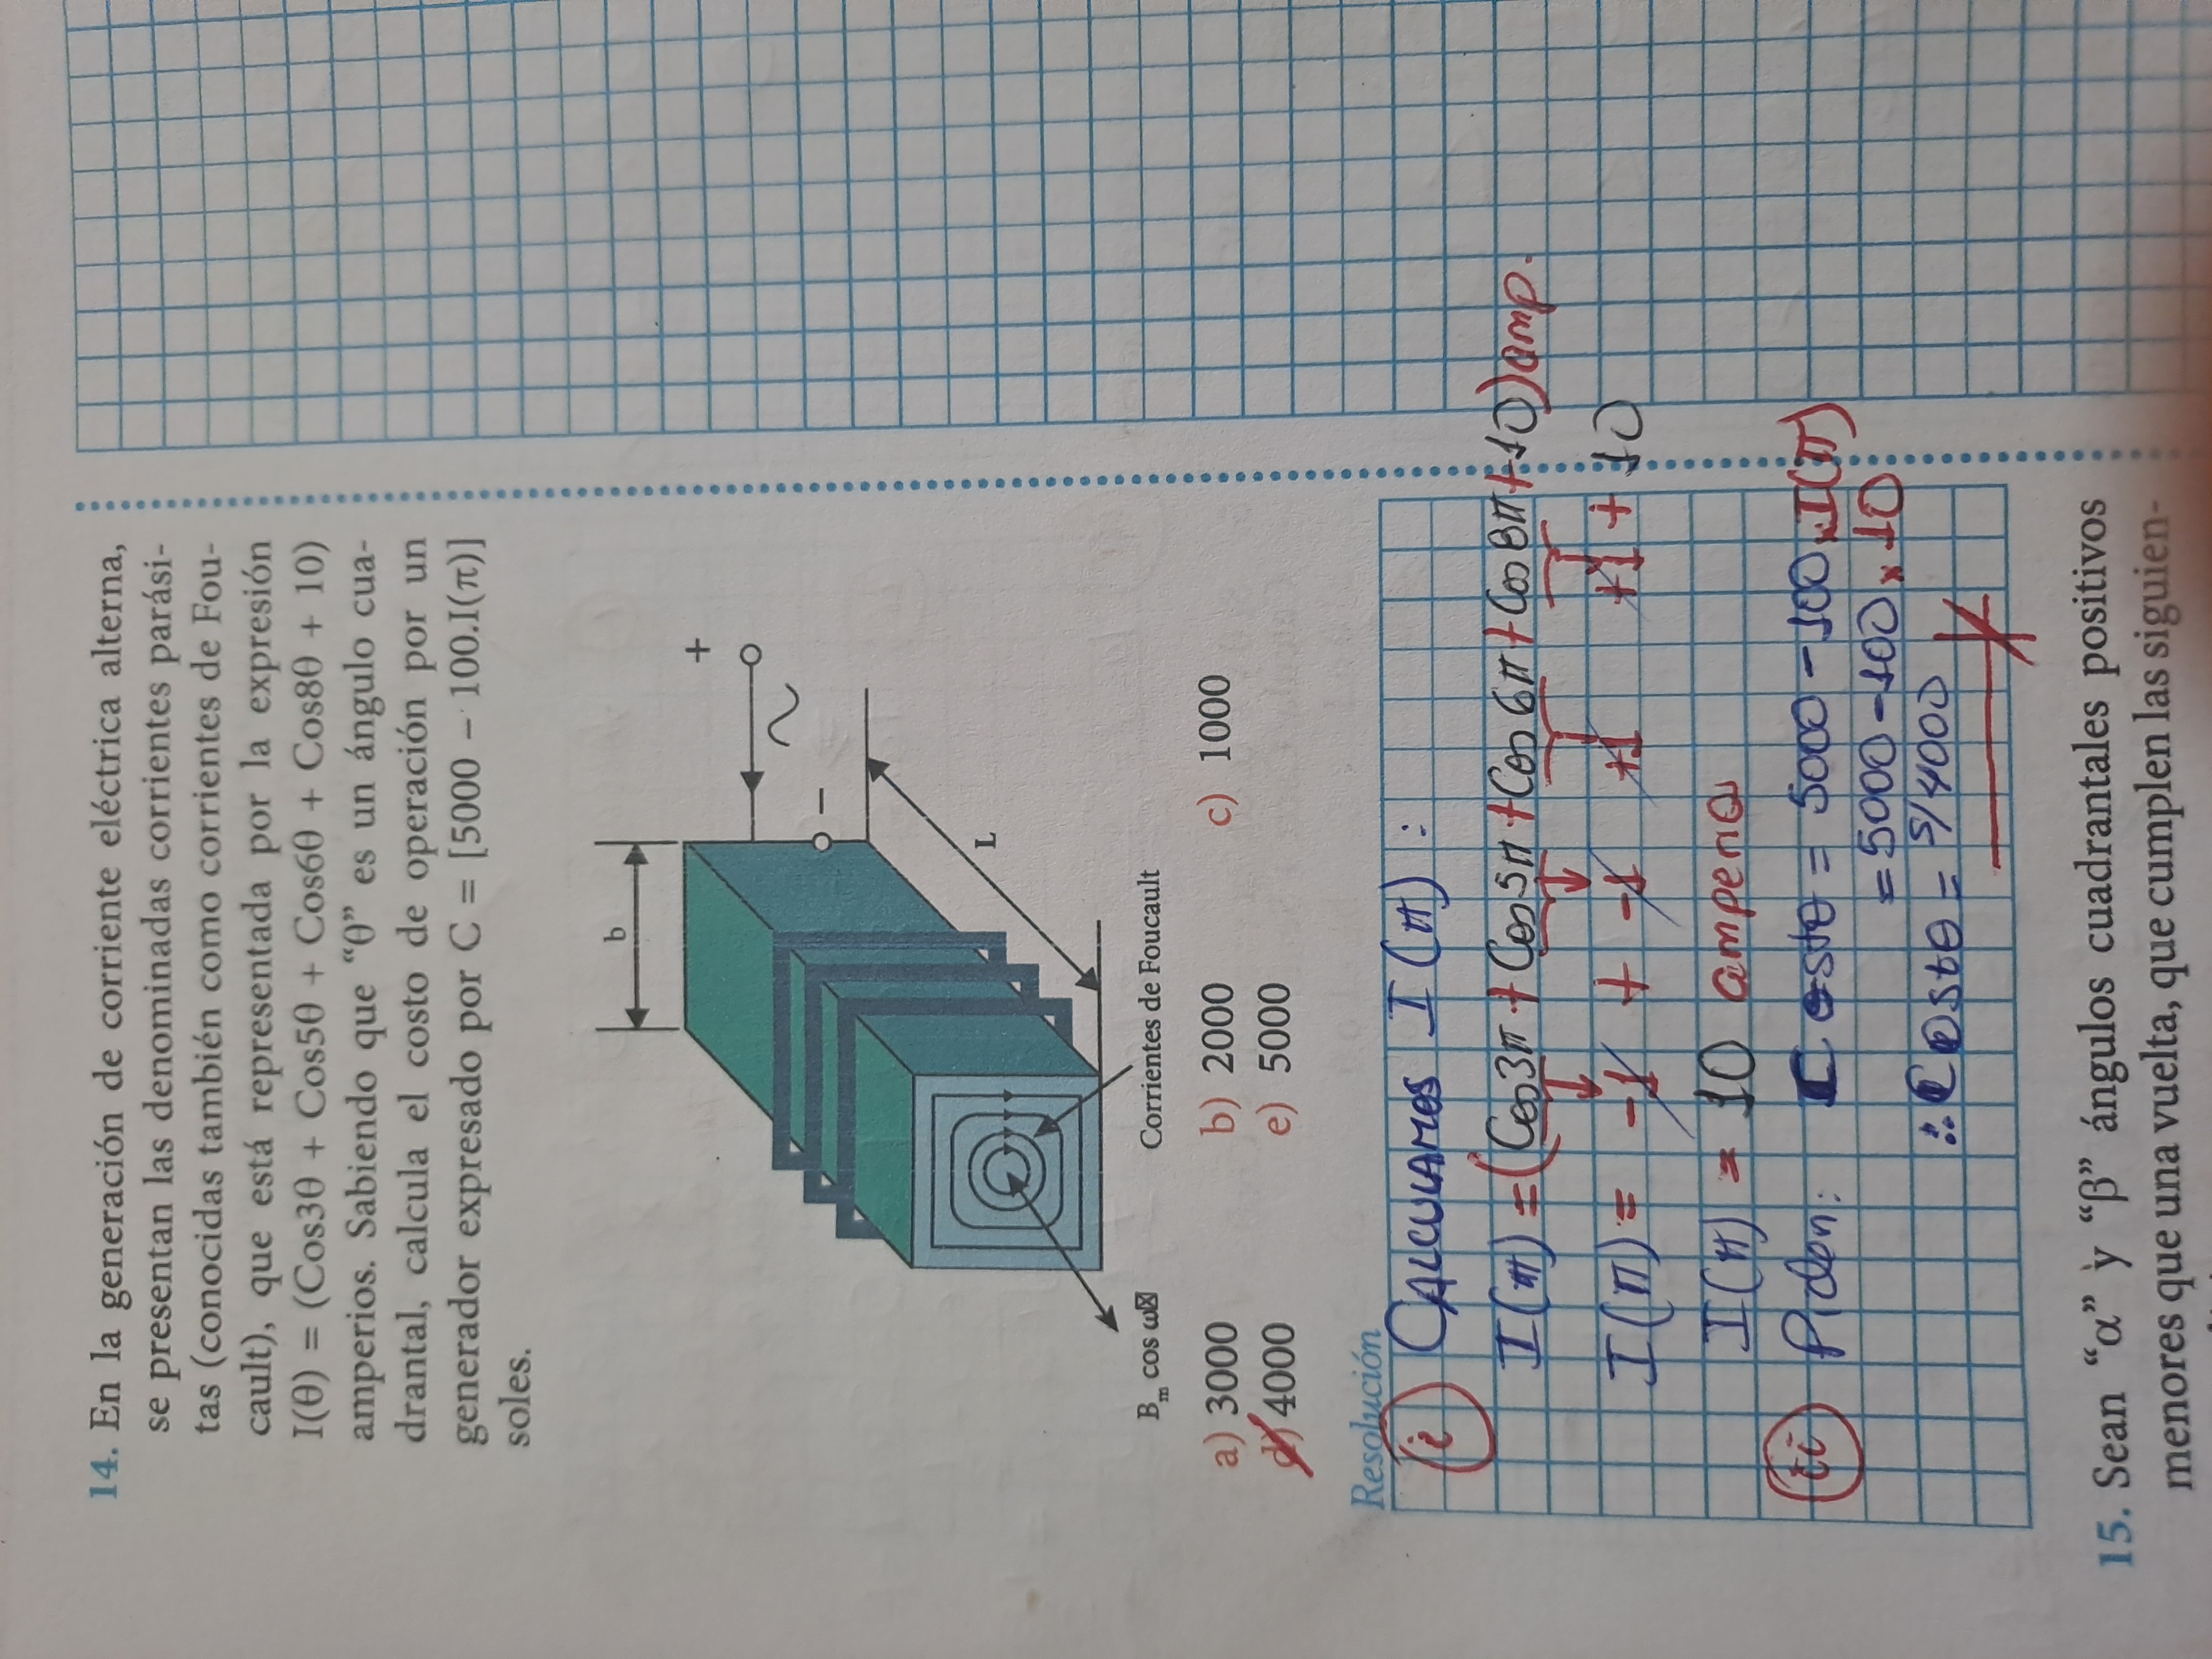 14. En la generación de corriente eléctrica alterna,
se presentan las denominadas corrientes parási-
tas (conocidas también como corrientes de Fou-
cault), que está representada por la expresión
I(θ) = (Cos3θ + Cos5θ + Cos6θ + Cos8θ + 10)
amperios. Sabiendo que “θ” es un ángulo cua-
drantal, calcula el costo de operación por un
generador expresado por C = [5000 – 100.I(π)]
soles.
b
+
–
L
Bm cos ω
Corrientes de Foucault
a) 3000 b) 2000 c) 1000
d) 4000 e) 5000
Resolución
i CALCULAMOS I(π):
I(π) = (Cos3π + Cos5π + Cos6π + Cos8π + 10) amp.
I(π) = -1 + -1 +1 +1 + 10
I(π) = 10 amperios
ii Piden: Costo = 5000 - 100 x I(π)
= 5000 - 100 x 10
∴ Costo = S/4000
15. Sean “α” y “β” ángulos cuadrantales positivos
menores que una vuelta, que cumplen las siguien-